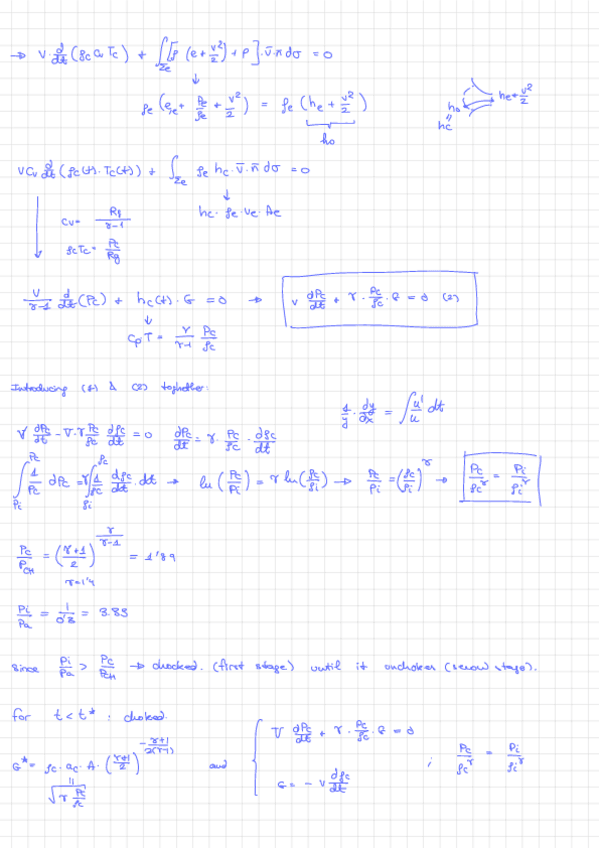 → V · d/dt (ρc cv Tc) + ∫Σe [ρ (e + v²/2) + p] · v̄ · n̄ dσ = 0
↓
ρe (ee + Pe/ρe + v²/2) = ρe (he + v²/2)
h0
he + v²/2
h0
=
hc
V cv d/dt (ρc(t) · Tc(t)) + ∫Σe ρe hc · v̄ · n̄ dσ = 0
↓
hc · ρe · ve · Ae
cv = Rg/γ-1
ρcTc = Pc/Rg
V/γ-1 d/dt (Pc) + hc(t) · G = 0 → V dPc/dt + γ · Pc/ρc · G = 0 (2)
↓
Cp T = γ/γ-1 Pc/ρc
Introducing (1) & (2) toghether:
1/y · dy/dx = ∫ u'/u dt
V dPc/dt - V · γ Pc/ρc dρc/dt = 0 dPc/dt = γ · Pc/ρc · dρc/dt
∫Pi^Pc 1/Pc dPc = γ ∫ρi^ρc 1/ρc dρc/dt · dt → ln (Pc/Pi) = γ ln (ρc/ρi) → Pc/Pi = (ρc/ρi)^γ → Pc/ρc^γ = Pi/ρi^γ
Pc/PCH = (γ+1/2)^γ/γ-1 = 1'89
γ=1'4
Pi/Pa = 1/0'3 = 3.33
Since Pi/Pa > Pc/PCH → chocked. (first stage) until it unchokes (second stage).
for t < t* : choked.
G* = ρc · ac · A · (γ+1/2)^-γ+1/2(γ-1) and { V dPc/dt + γ · Pc/ρc · G = 0 ; Pc/ρc^γ = Pi/ρi^γ
=
√γ Pc/ρc
G = - V dρc/dt